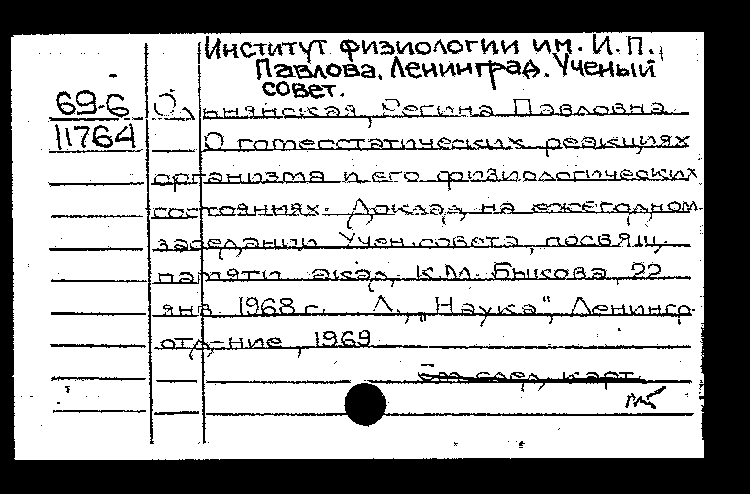 Институт физиологии им. И. П.
Павлова, Ленинград. Ученый
совет.
69-6 Ольнянская, Регина Павловна
11764 О гомеостатических реакциях
организма и его физиологических
состояниях. Доклад на ежегодном
заседании Учен. совета, посвящ.
памяти акад. К.М. Быкова, 22
янв. 1968 г. Л., „Наука", Ленингр.
отд-ние, 1969
См. след. карт.